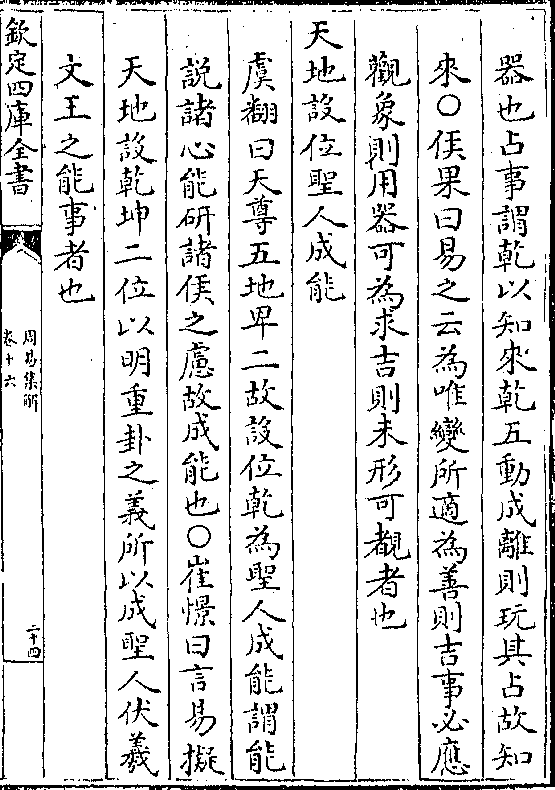 器也占事謂乾以知來乾五動成離則玩其占故知
來○侯果曰易之云為唯變所適為善則吉事必應
觀象則用器可為求吉則未形可覩者也
天地設位聖人成能
虞翻曰天尊五地卑二故設位乾為聖人成能謂能
說諸心能研諸侯之慮故成能也○崔憬曰言易擬
天地設乾坤二位以明重卦之義所以成聖人伏羲
文王之能事者也
欽定四庫全書
周易集解
卷十六
二十四